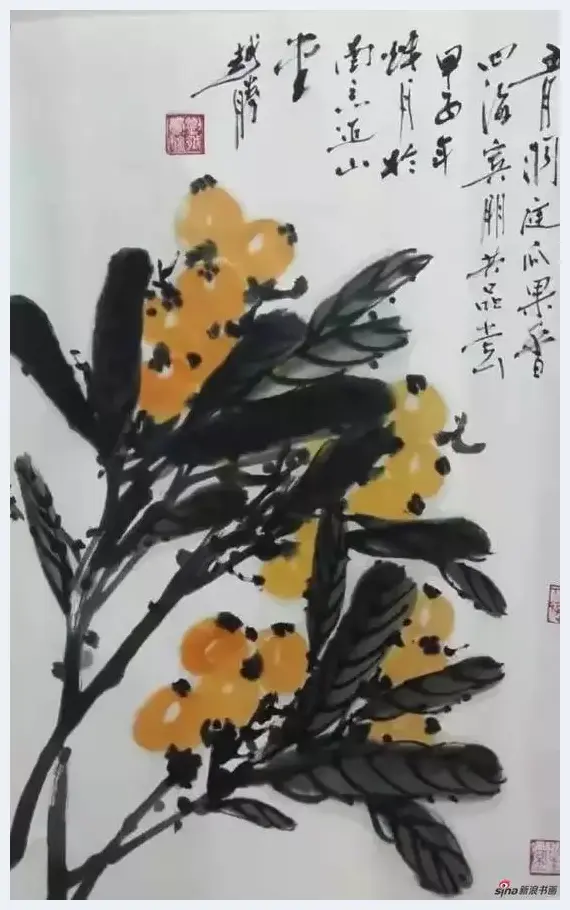 五月洞庭瓜果香
四海賓朋共品尝
甲午年
秋月於
南京近山
堂
越腾
sina新浪书画